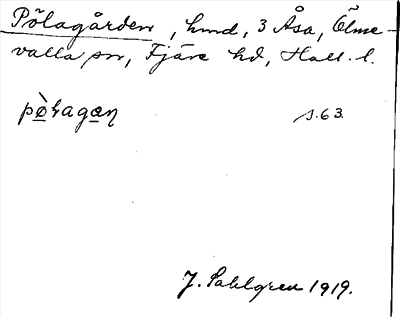 Pölagården, hmd, 3 Åsa, Ölme-
valla sn, Fjäre hd, Hall. l.
pòlagan s. 63.
J. Sahlgren 1919.